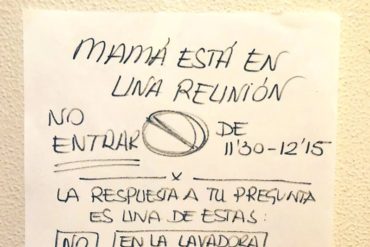 MAMÁ ESTÁ EN
UNA REUNIÓN
NO
ENTRAR
DE
11'30-12'15
x
LA RESPUESTA A TU PREGUNTA
ES UNA DE ESTAS:
NO EN LA LAVADORA